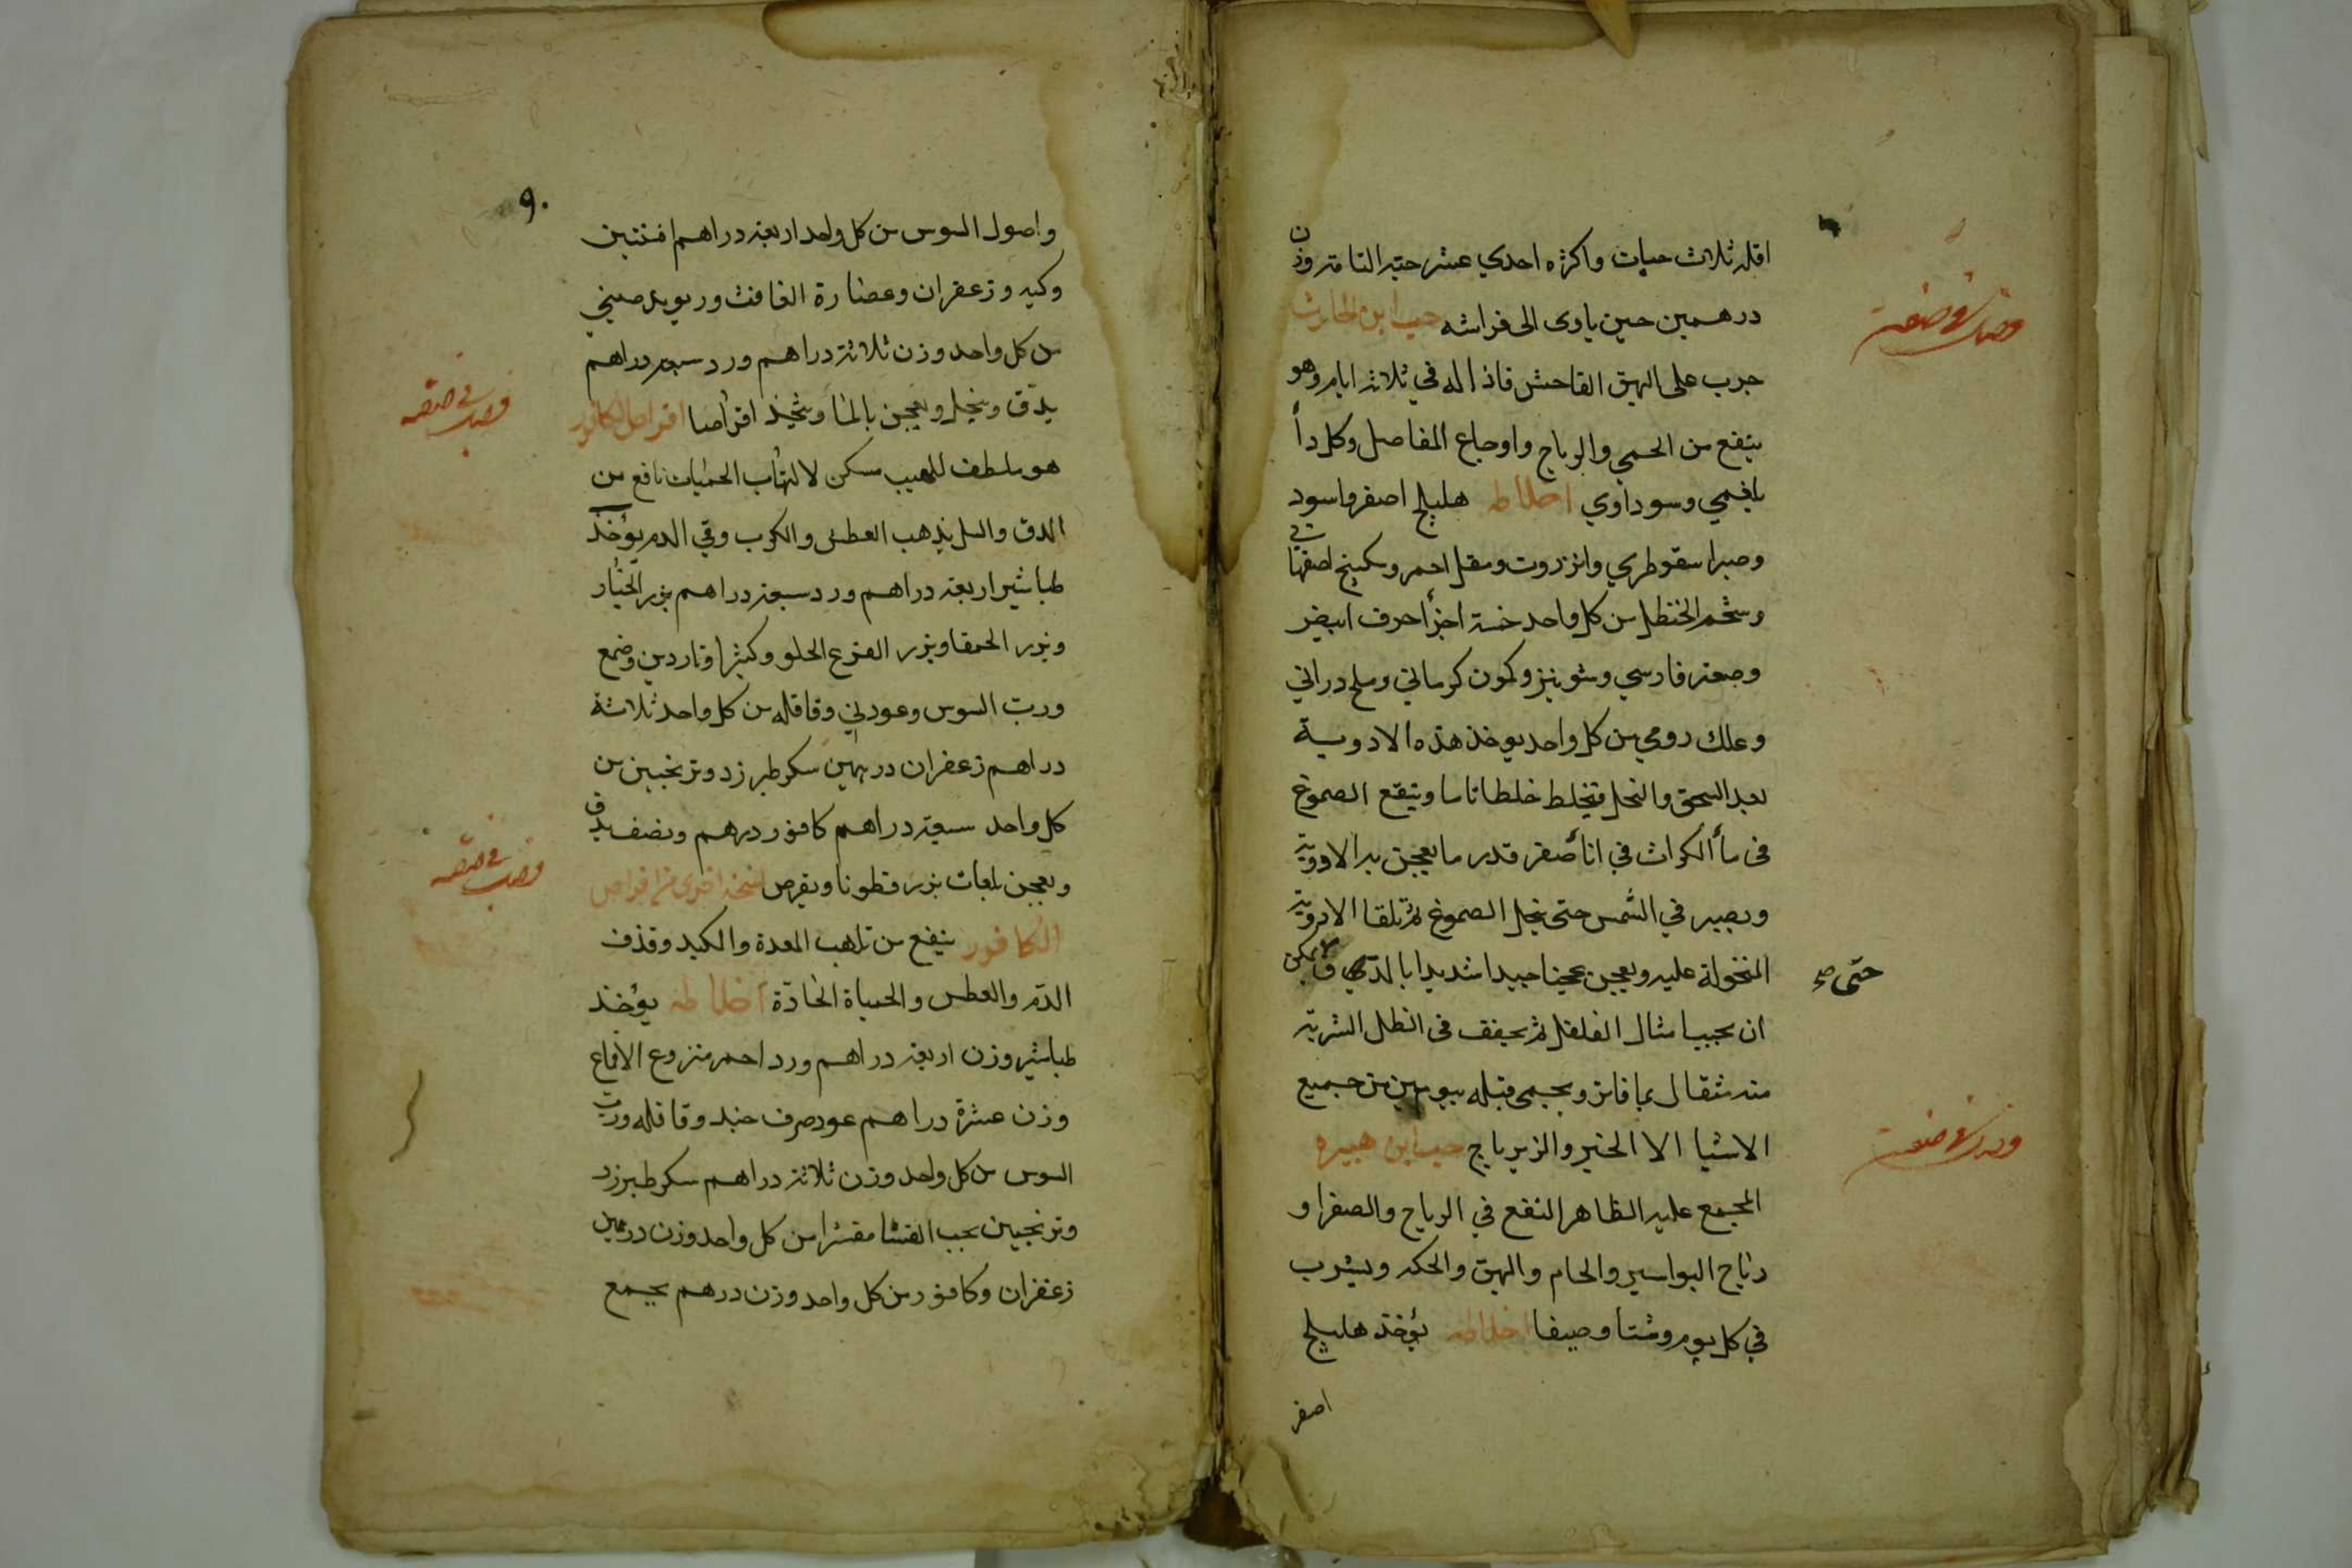 اقله ثلاث حبات واكثره احدي عشر حبة التامة وزن
درهمين حين ياوى الى فراشه حب ابن الحارث
جرب على البهق الفاحش فاذاله في ثلاثة ايام وهو
ينفع من الحمي والرياح واوجاع المفاصل وكل دأ
بلغمي وسوداوي اخلاطه هليلج اصفر واسود
وصبر اسقوطري وانزروت ومقل احمر وسكبينج اصفهاني
وشحم الحنظل من كل واحد خمسة اجزأ حرف ابيض
وصعتر فارسي وشونيز وكمون كرماني وملح دراني
وعلك رومي من كل واحد يوخذ هذه الادوية
بعد السحق والنخل فتخلط خلطا تاما وينقع الصموغ
في مأ الكراث في اناصفر قدر ما يعجن به الادوية
ويصير في الشمس حتى ينحل الصموغ ثم تلقا الادوية
المنخولة عليه ويعجن عجينا جيدا شديدا بالدق يمكن
حتى صح
ان يحبب امثال الفلفل ثم يجفف في الظل الشربة
منه مثقال بما فاتر ويحيمى قبله بيومين من جميع
الاشيا الا الخبز والزيرباج حب ابن هبيره
المجمع عليه الظاهر النفع في الرياح والصفرا و
رياح البواسير والخام والبهق والحكه ويشرب
في كل يوم وشتا وصيفا اخلاطه يؤخذ هليلج
اصفر
٩٠
واصول السوس من كل واحد اربعة دراهم افسنتين
وكيه وزعفران وعصارة الغافث وريوند صيني
من كل واحد وزن ثلاثة دراهم ورد سبعة دراهم
يدق وينخل ويعجن بالما ويتخذ اقراصا اقراص الكافور
فصل في صنعة
هو ملطف للهيب مسكن لالتهاب الحميات نافع من
الدق والسل يذهب العطش والكرب وقي الدم يؤخذ
طباشير اربعة دراهم ورد سبعة دراهم بزر الخيار
وبزر الحمقا وبزر القرع الحلو وكثيرا وناردين وصمغ
ورب السوس وعود ني وقاقله من كل واحد ثلاثة
دراهم زعفران درهمين سكر طبرزد وترنجبين من
كل واحد سبعة دراهم كافور درهم ونصف يدق
ويعجن بلعاب بزر قطونا ويقرص نسخة اخرى من اقراص
فصل في صنعة
الكافور ينفع من تلهب المعدة والكبد وقذف
الدم والعطس والحمياة الحادة اخلاطه يؤخذ
طباشير وزن اربعة دراهم ورد احمر منزوع الاقماع
وزن عشرة دراهم عود صرف جيد وقاقله ورب
السوس من كل واحد وزن ثلاثة دراهم سكر طبرزد
وترنجبين بحب القثا مقشرا من كل واحد وزن درهمين
زعفران وكافور من كل واحد وزن درهم يجمع